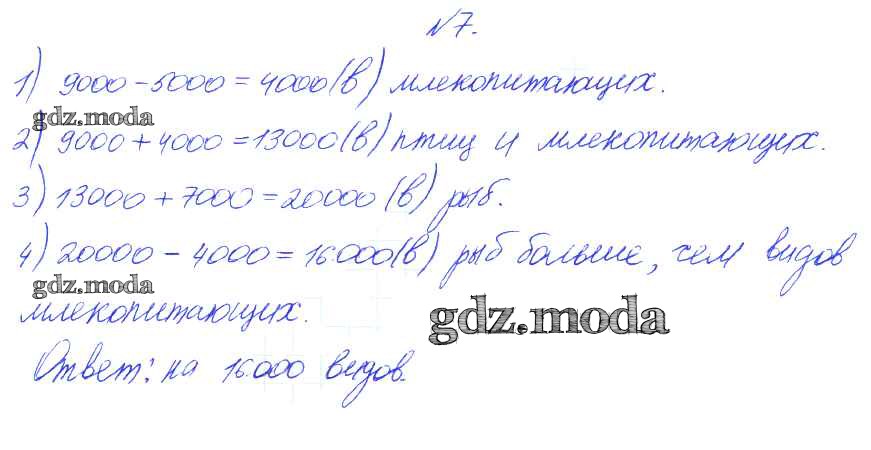 №7.
1) 9000 - 5000 = 4000 (в) млекопитающих.
gdz.moda
2) 9000 + 4000 = 13000 (в) птиц и млекопитающих.
3) 13000 + 7000 = 20000 (в) рыб.
4) 20000 - 4000 = 16000 (в) рыб больше, чем видов
gdz.moda
млекопитающих.
gdz.moda
Ответ: на 16000 видов.